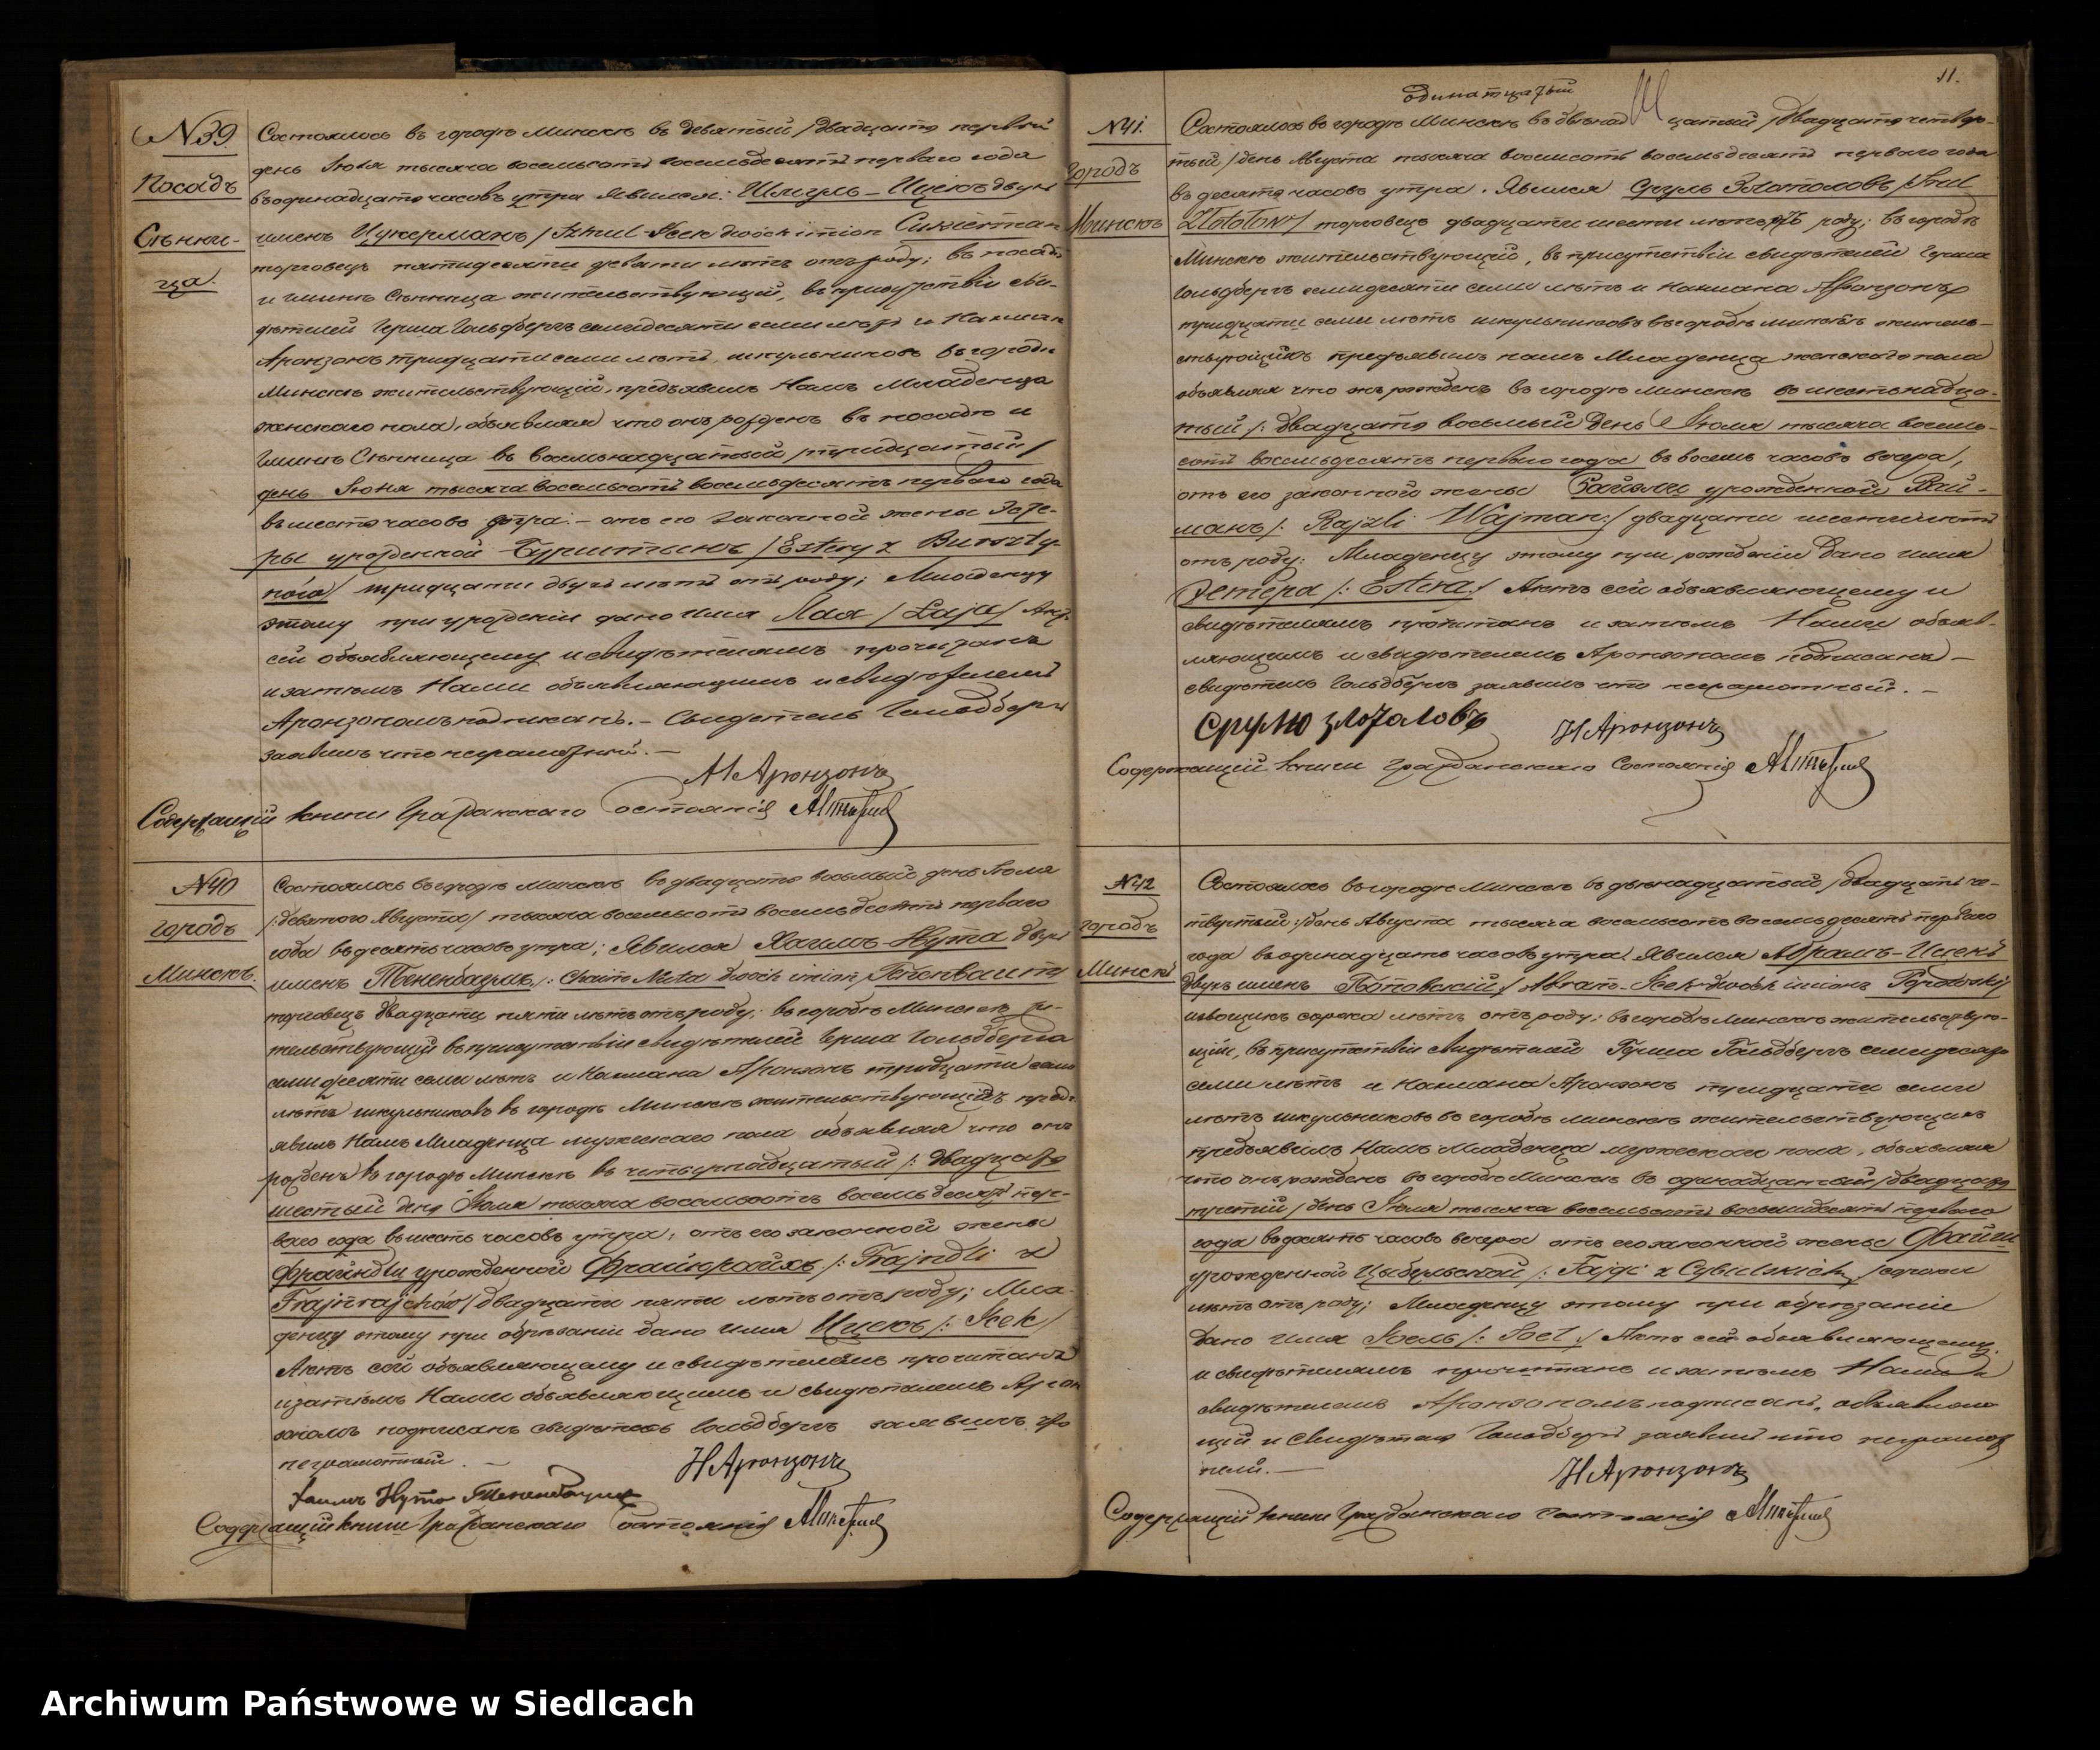 №39.
Посадъ
Сѣнни-
ца.
Состоялось въ городѣ Минскѣ въ девятый /двадцать первый
день Іюля тысяча восемьсотъ восемьдесятъ перваго года
въ одинадцать часовъ утра. Явился: Шмуль-Ицекъ двухъ
именъ Цукерманъ /Szmul-Icek dwoch imion Cukierman
торговецъ пятидесяти девяти лѣтъ отъ роду; въ посадѣ
и гминѣ Сѣнница жительствующій, въ присутствіи сви-
дѣтелей Герша Гольдбергъ семидесяти семи лѣтъ и Нахмана
Аронзонъ тридцати семи лѣтъ, школьниковъ въ городѣ
Минскѣ жительствующій, предъявилъ Намъ Младенца
женскаго пола, объявляя что онъ рожденъ въ посадѣ и
гминѣ Сѣнница въ восемьнадцатый /тридцатый/
день Іюня тысяча восемьсотъ восемьдесятъ перваго года
въ шесть часовъ утра. – отъ его законной жены Эсте-
ры урожденной Бурштынъ /Estery z Burszty-
nów/ тридцати двухъ лѣтъ отъ роду; Младенцу
этому при урожденіи дано имя Лая /Łaja/ Актъ
сей объявляющему и свидѣтелямъ прочитанъ
и затѣмъ Нами объявляющимъ и свидѣтелемъ
Аронзономъ подписанъ. – Свидетель Гольдбергъ
заявилъ что неграмотный. –
Н Аронзонъ
Содержащій книги Гражданскаго Состоянія
№40
городъ
Минскъ.
Состоялось въ городѣ Минскѣ въ двадцать восьмый день Іюля
/:девятого Августа/ тысяча восемьсотъ восемьдесятъ перваго
года въ десять часовъ утра; Явился Хаимъ-Нута двухъ
именъ Тененбаумъ /: Chaim Nuta dwoch imion Tenenbaum/
торговецъ двадцати пяти лѣтъ отъ роду; въ городѣ Минскѣ жи-
тельствующій въ присутствіи свидѣтелей Герша Гольдберга
семидесяти семи лѣтъ и Нахмана Аронзонъ тридцати семи
лѣтъ школьниковъ въ городѣ Минскѣ жительствующихъ предъ-
явилъ Намъ Младенца мужескаго пола объявляя что онъ
рожденъ въ городѣ Минскѣ въ четырнадцатый /: двадцать
шестый день Іюля тысяча восемьсотъ восемьдесятъ пер-
ваго года въ шесть часовъ утра, отъ его законной жены
Фрайндли урожденной Фрайнрайхъ /: Frajndli z
Frajnrajchów/ двадцати пяти лѣтъ отъ роду; Мла-
денцу этому при обрѣзаніи дано имя Ицекъ /: Icek/
Актъ сей объявляющему и свидѣтелямъ прочитанъ
и затѣмъ Нами объявляющимъ и свидѣтелемъ Арон
зономъ подписанъ свидѣтель Гольдбергъ заявилъ что
неграмотный. –
Н Аронзонъ
Хаимъ Нута Тененбаумъ
Содержащій книги Гражданскаго Состоянія
11.
одинатцатый
№41.
городъ
Минскъ
Состоялось въ городѣ Минскѣ въ двѣнад цатый /двадцать четвер-
тый/ день Августа тысяча восемсотъ восемьдесятъ перваго года
въ десять часовъ утра. Явился Сруль Золотоловъ /Srul
Zlotolow/ торговецъ двадцати шести лѣтъ отъ роду; въ городѣ
Минскѣ жительствующій, въ присутствіи свидѣтелей Герша
Гольдбергъ семидесяти семи лѣтъ и Нахмана Аронзонъ
тридцати семи лѣтъ школьниковъ въ городѣ Минскѣ житель-
ствующихъ предъявилъ намъ Младенца женскаго пола
объявляя что онъ рожденъ въ городѣ Минскѣ въ шестьнадца-
тый /: двадцать восьмый день Іюля тысяча восемь-
сотъ восемьдесятъ перваго года въ восемь часовъ вечера,
отъ его законной жены Райзли урожденной Вай-
манъ /: Rajzli Wajman:/ двадцати шести лѣтъ
отъ роду: Младенцу этому при рожденіи дано имя
Эстера /: Estera/ Актъ сей объявляющему и
свидѣтелямъ прочитанъ и затѣмъ Нами объяв-
ляющимъ и свидѣтелемъ Аронзономъ подписанъ –
свидѣтель Гольдбергъ заявилъ что неграмотный. –
Срулю Злоталовъ
Н Аронзонъ
Содержащій книги Гражданскаго Состоянія
№42
городъ
Минскъ
Состоялось въ городѣ Минскѣ въ двѣнадцатый /двадцать че-
твертый:/ день Августа тысяча восемьсотъ восемьдесятъ перваго
года въ одинадцать часовъ утра. Явился Абрамъ-Ицекъ
двухъ именъ /Abram-Icek dwoch imion
извощикъ сорока лѣтъ отъ роду; въ городѣ Минскѣ жительствую-
щій, въ присутствіи свидѣтелей Герша Гольдбергъ семидесяти
семи лѣтъ и Нахмана Аронзонъ тридцати семи
лѣтъ школьниковъ въ городѣ Минскѣ жительствующихъ
предъявилъ Намъ Младенца мужескаго пола, объявляя
что онъ рожденъ въ городѣ Минскѣ въ одинадцатый /двадцать
третій/ день Іюля тысяча восемьсотъ восемьдесятъ перваго
года въ десять часовъ вечера отъ его законной жены Файги
урожденной Цыбульской /: Fajgi z Cybulskich/ сорока
лѣтъ отъ роду; Младенцу этому при обрѣзаніи
дано имя Іоель /: Joel/ Актъ сей объявляющему
и свидѣтелямъ прочитанъ и затѣмъ Нами и
свидѣтелемъ Аронзономъ подписанъ, объявляю
щій и Свидѣтель Гольдбергъ заявили что неграмот
ные. –
Н Аронзонъ
Содержащій книги Гражданскаго Состоянія
Archiwum Państwowe w Siedlcach